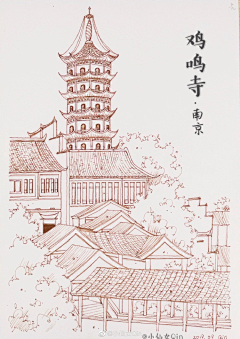 鸡鸣寺·南京
@小仙女Qin